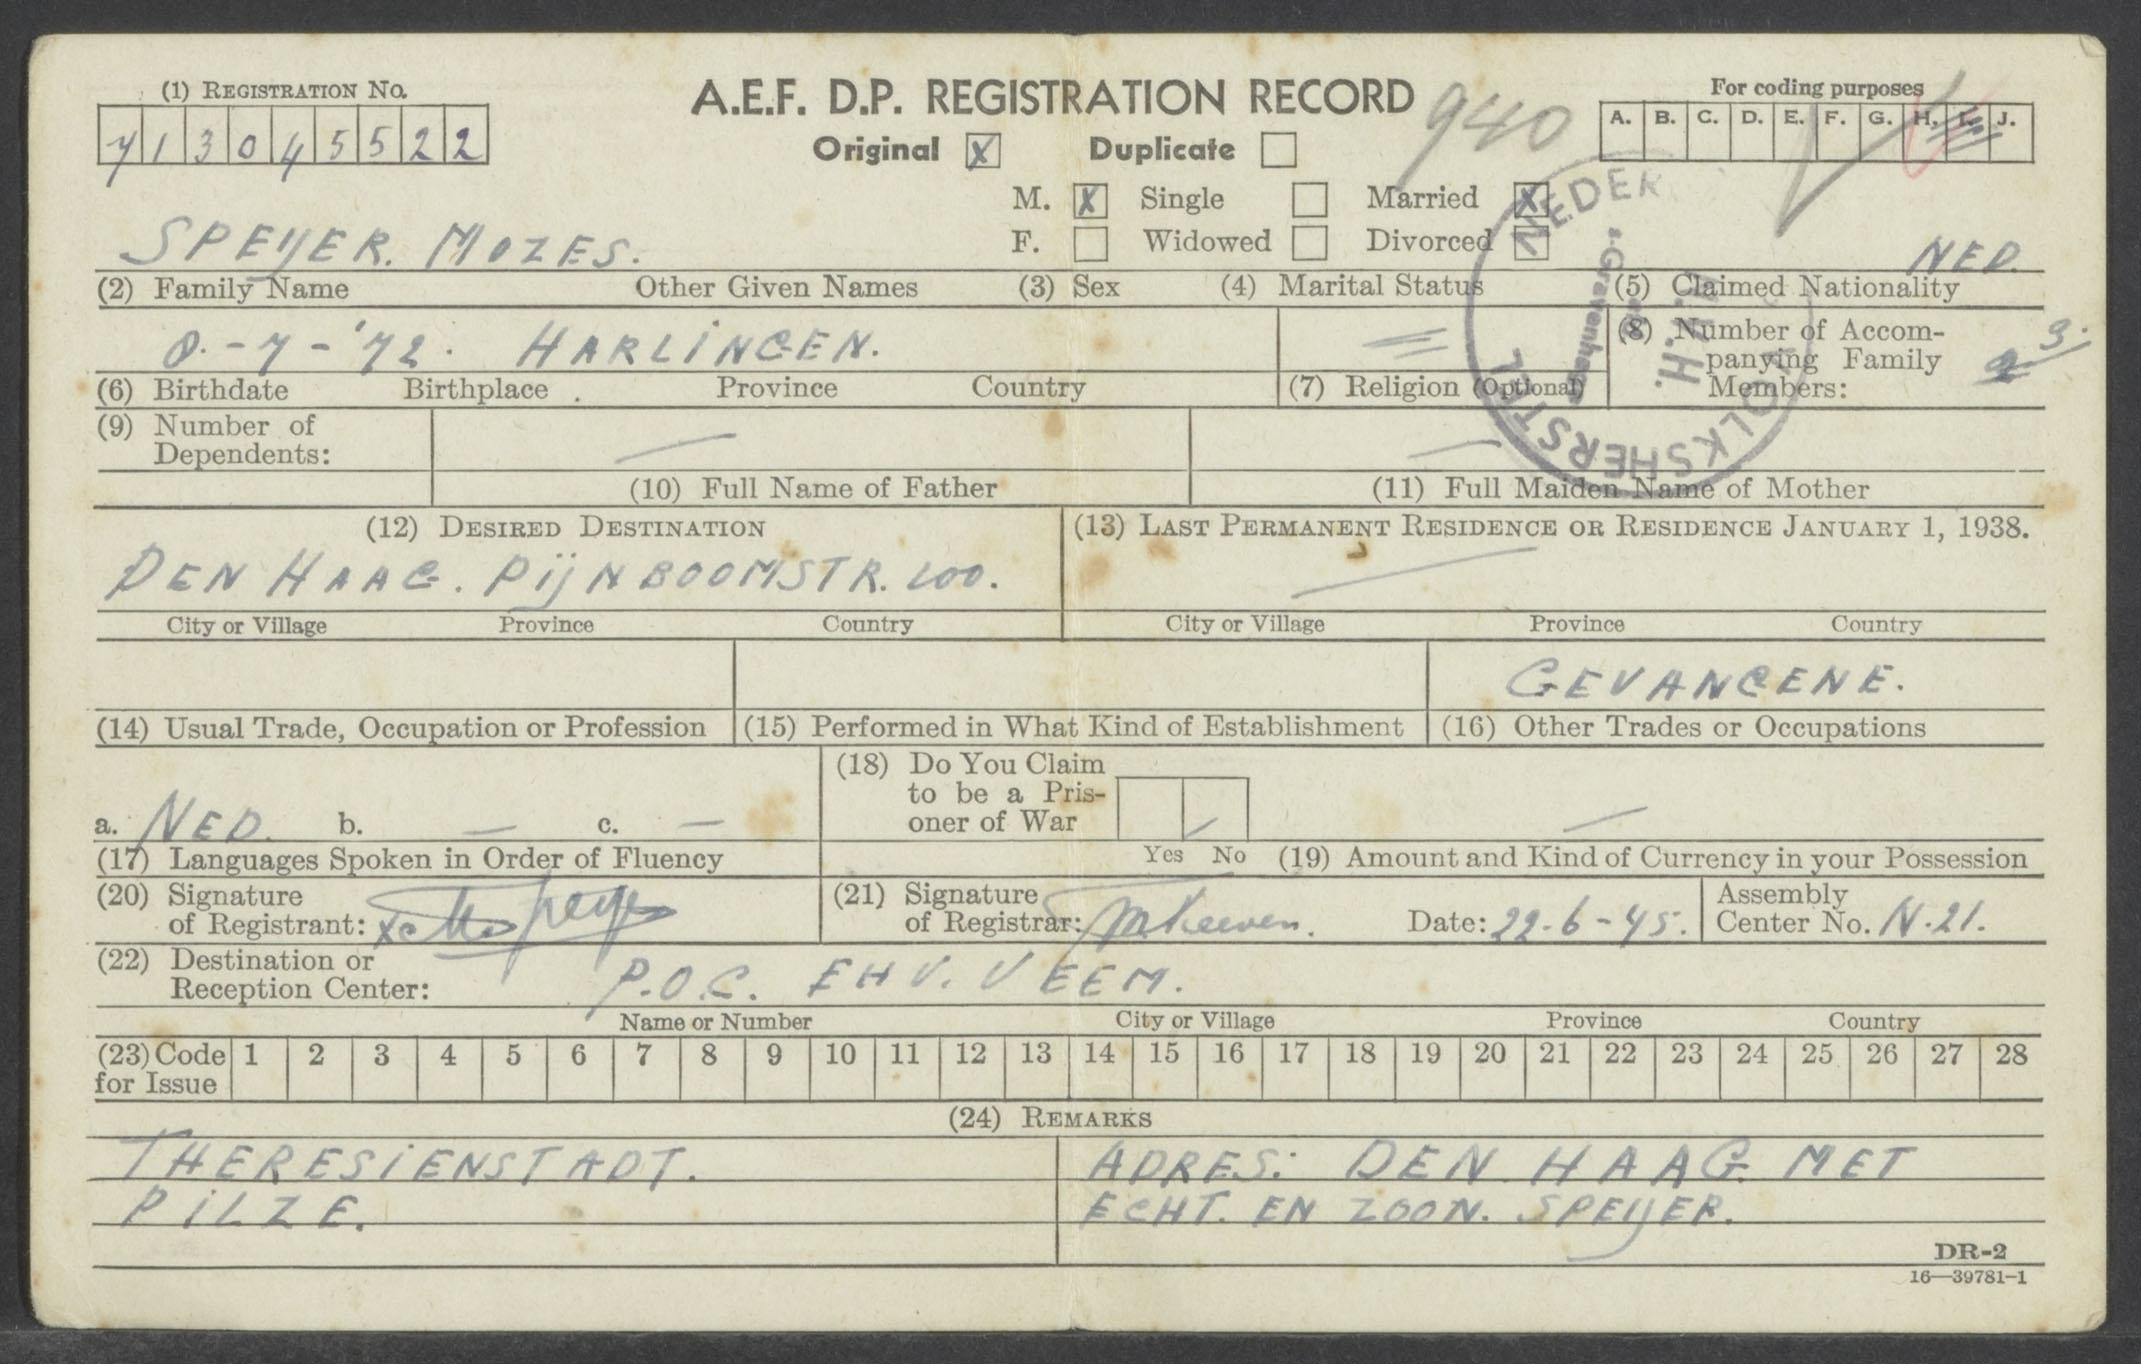 (1) REGISTRATION No.
713045522
A.E.F. D.P. REGISTRATION RECORD
940
For coding purposes
A. B. C. D. E. F. G. H. I. J.
Original X Duplicate
M. X Single Married X
F. Widowed Divorced
SPEIJER. MOZES. NED.
(2) Family Name Other Given Names (3) Sex (4) Marital Status (5) Claimed Nationality
NEDER VOLKSHERSTEL
's-Gravenhage
H.
-7-'72. HARLINGEN.
(8) Number of Accompanying Family Members: 3.
(6) Birthdate Birthplace Province Country (7) Religion (Optional)
(9) Number of Dependents:
(10) Full Name of Father (11) Full Maiden Name of Mother
(12) DESIRED DESTINATION (13) LAST PERMANENT RESIDENCE OR RESIDENCE JANUARY 1, 1938.
DEN HAAG. PIJNBOOMSTR. 100.
City or Village Province Country City or Village Province Country
GEVANGENE.
(14) Usual Trade, Occupation or Profession (15) Performed in What Kind of Establishment (16) Other Trades or Occupations
(18) Do You Claim to be a Prisoner of War
a. NED. b. — c. —
(17) Languages Spoken in Order of Fluency Yes No (19) Amount and Kind of Currency in your Possession
(20) Signature of Registrant: (21) Signature of Registrar: Date: 22-6-45. Assembly Center No. N.21.
(22) Destination or Reception Center: P.O.C. EHV. VEEM.
Name or Number City or Village Province Country
(23) Code for Issue 1 2 3 4 5 6 7 8 9 10 11 12 13 14 15 16 17 18 19 20 21 22 23 24 25 26 27 28
(24) REMARKS
THERESIENSTADT. ADRES: DEN HAAG MET
PILZE. ECHT. EN ZOON. SPEIJER.
DR-2
16—39781-1